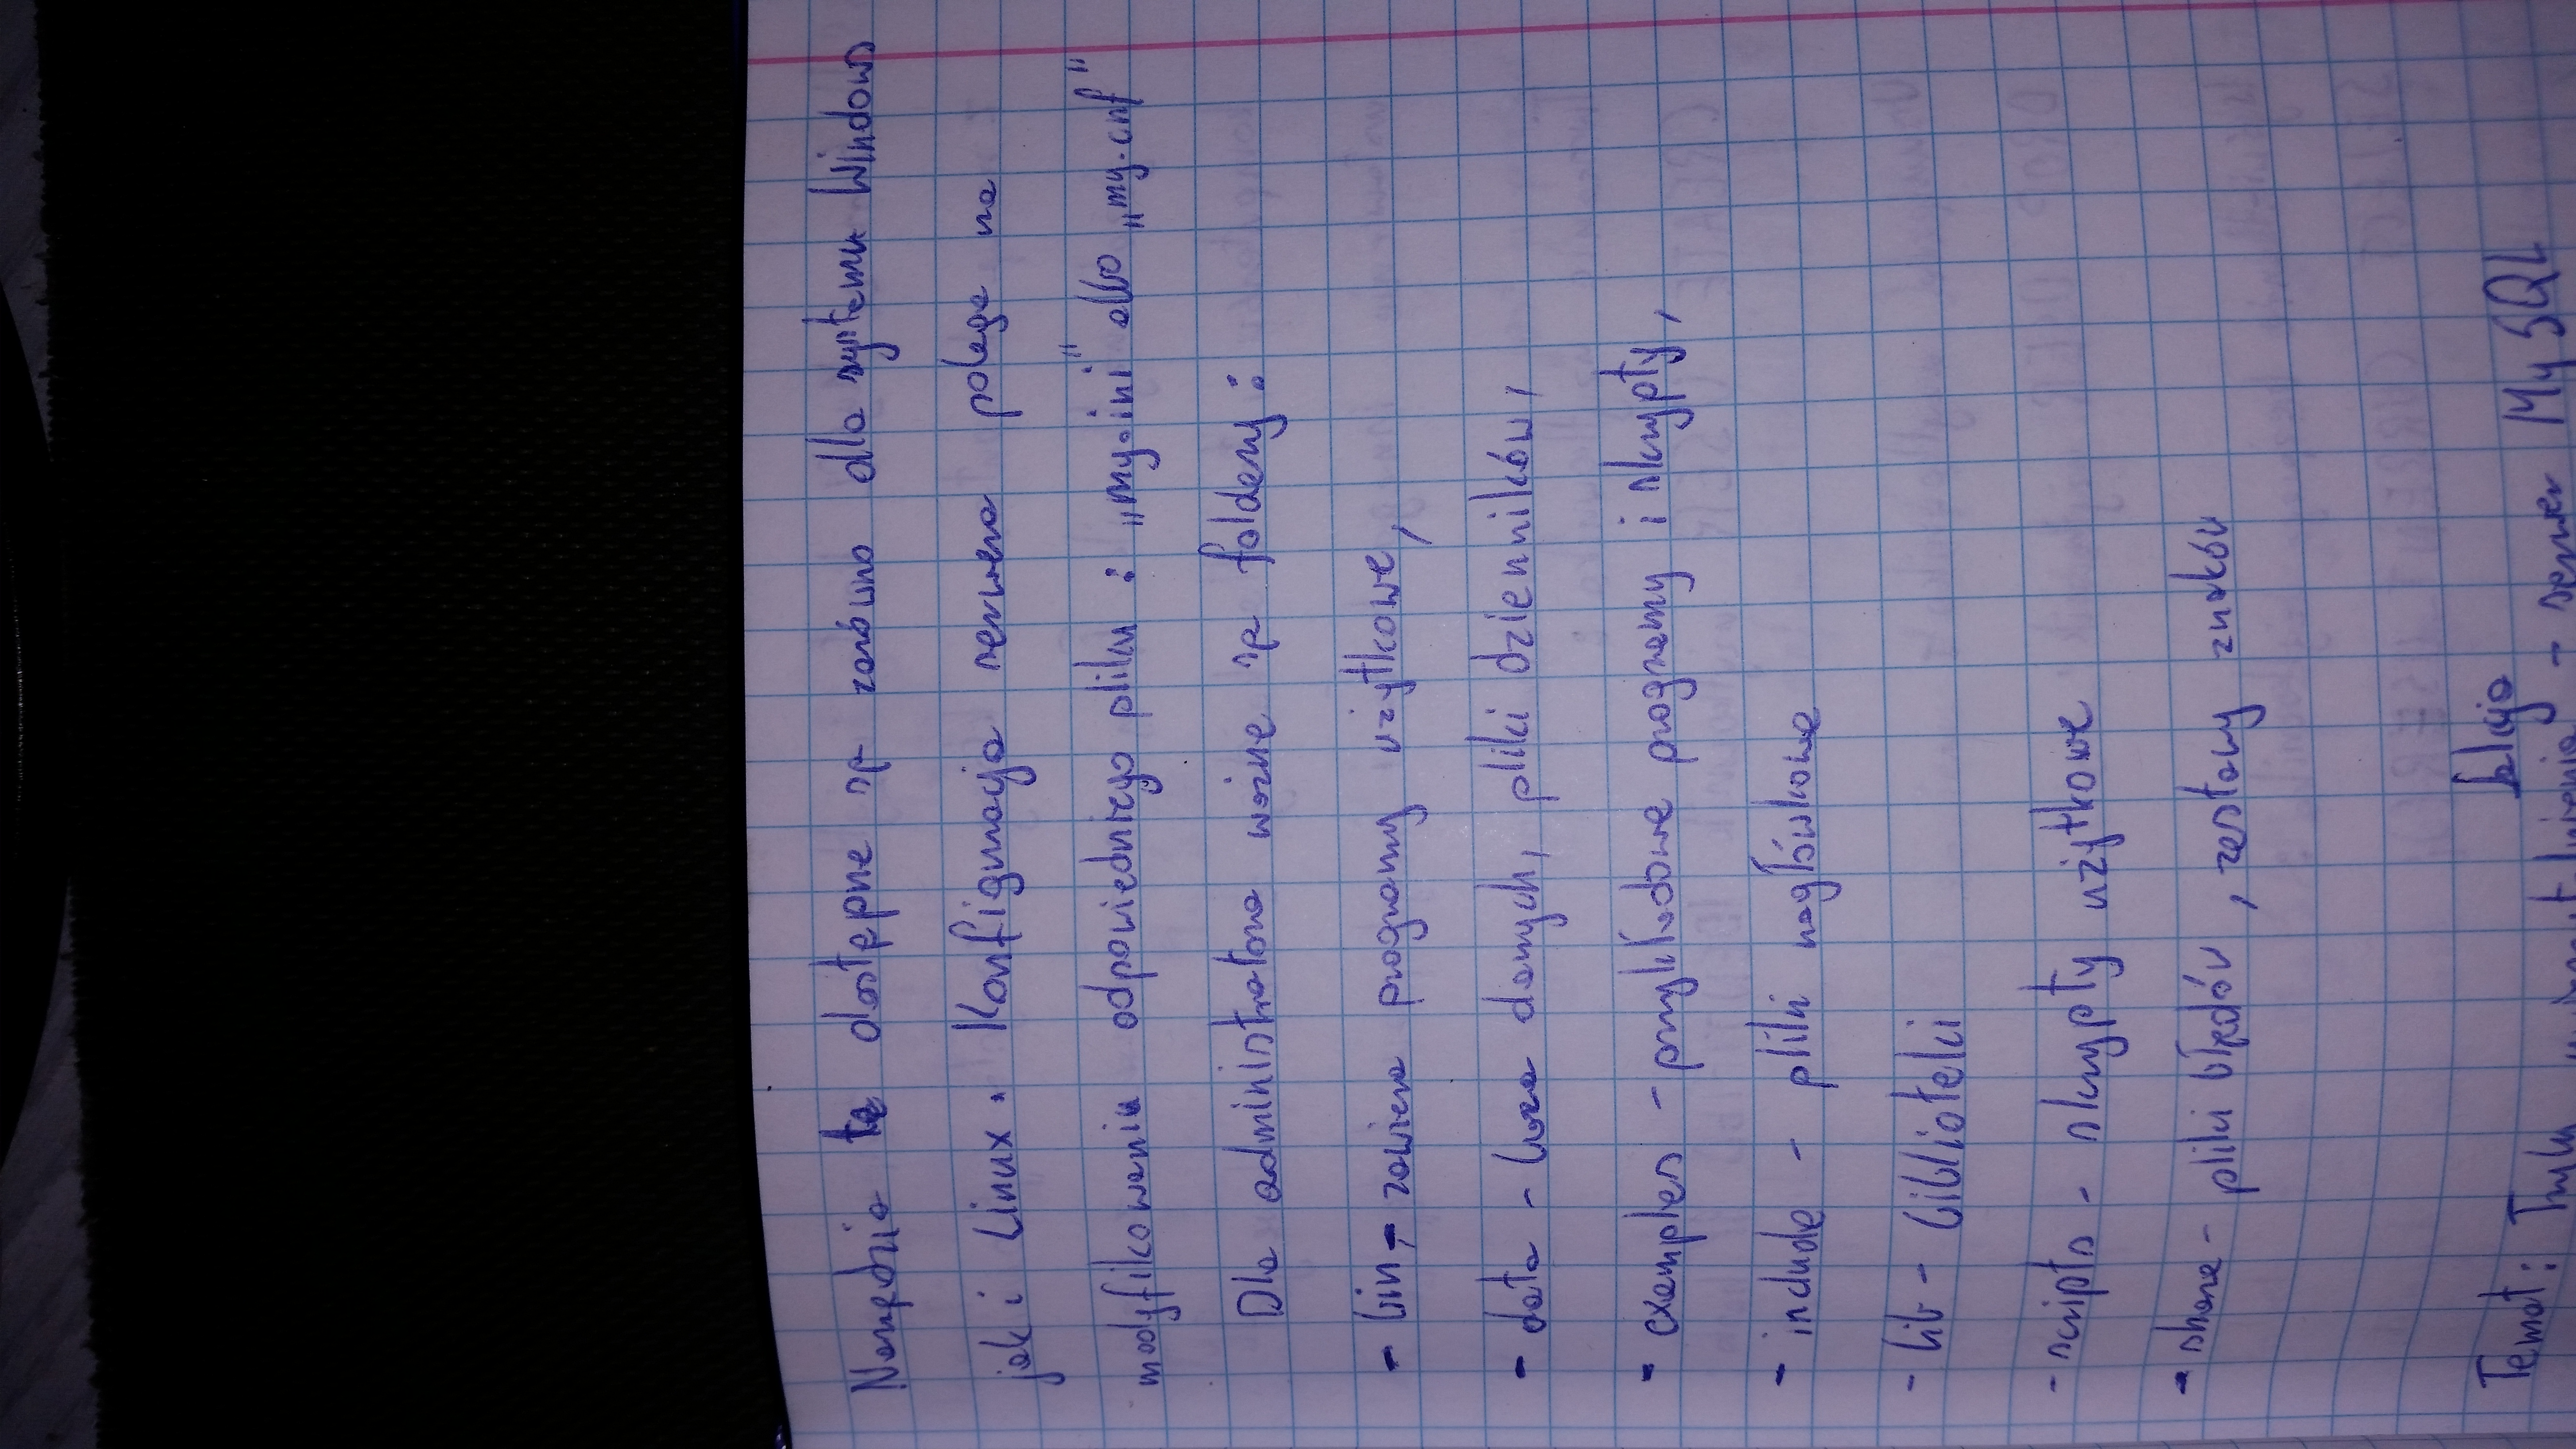 Narzędzia te dostępne są zarówno dla sytemu Windows
jak i Linux. Konfiguracja serwera polega na
modyfikowaniu odpowiedniego pliku: „my.ini" albo „my.cnf"
Dla administratora ważne są foldery:
- bin - zawiera programy użytkowe,
- data - baza danych, pliki dzienników,
- examples - przykładowe programy i skrypty,
- include - pliki nagłówkowe
- lib - biblioteki
- scripts - skrypty użytkowe
- share - pliki błędów, zestawy znaków
Temat: - serwer MySQL